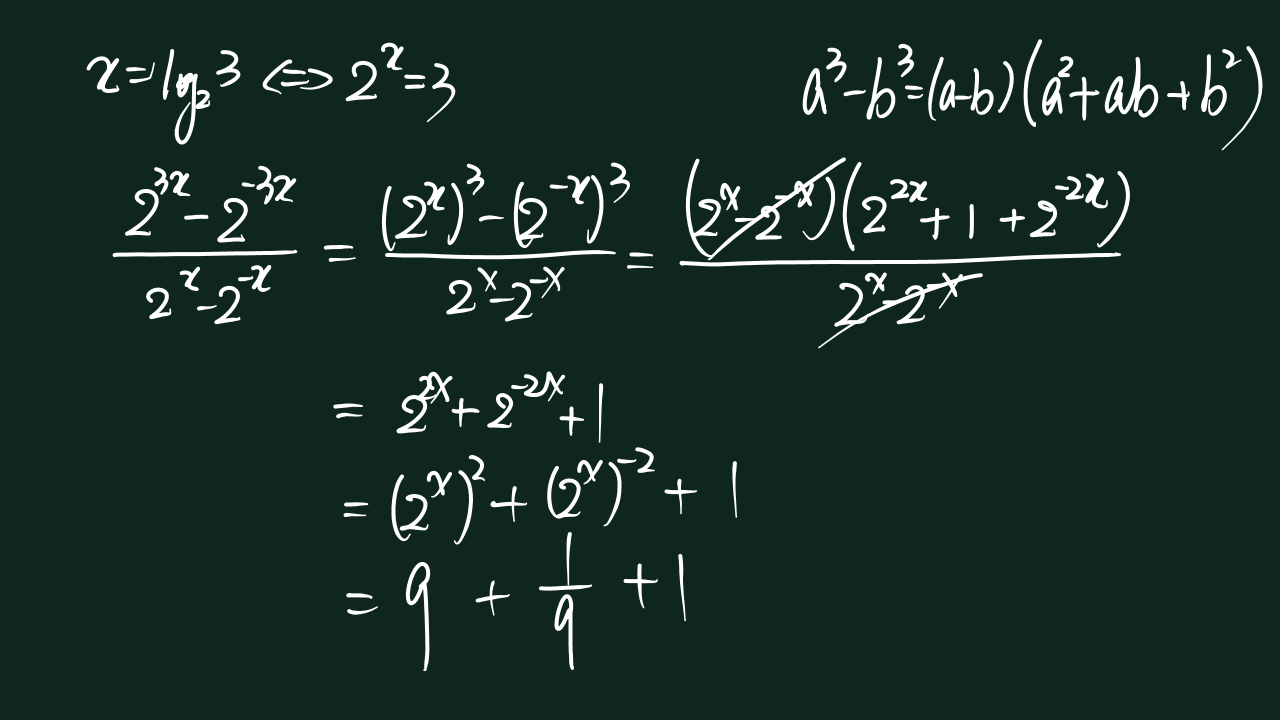 x = log₂3 ⇔ 2^x = 3
a³ - b³ = (a-b)(a² + ab + b²)
(2^{3x} - 2^{-3x})/(2^x - 2^{-x}) = ((2^x)³ - (2^{-x})³)/(2^x - 2^{-x}) = ((2^x - 2^{-x})(2^{2x} + 1 + 2^{-2x}))/(2^x - 2^{-x})
= 2^{2x} + 2^{-2x} + 1
= (2^x)² + (2^x)^{-2} + 1
= 9 + 1/9 + 1